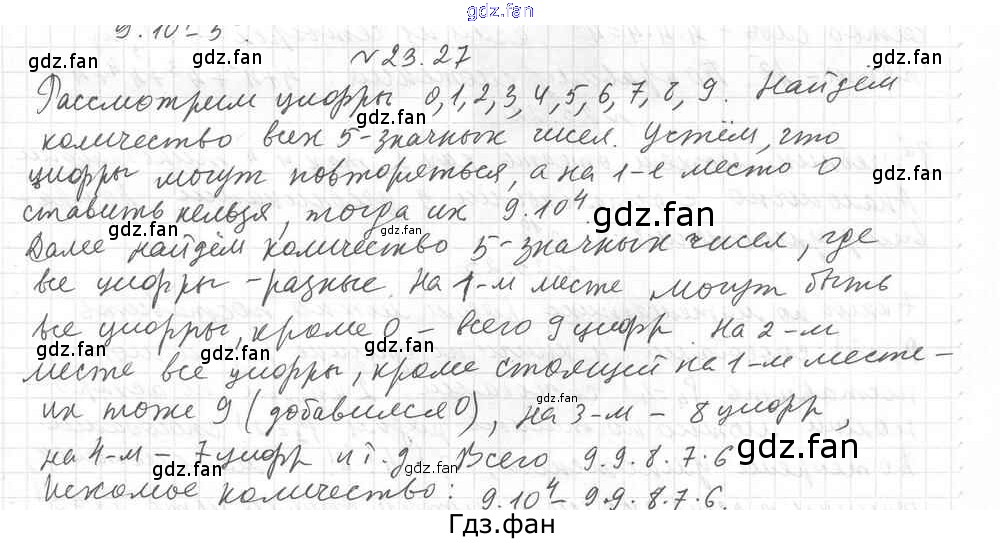 gdz.fan
9.10⁴-5
gdz.fan gdz.fan gdz.fan
№23.27
Рассмотрим цифры 0,1,2,3,4,5,6,7,8,9. Найдём
gdz.fan
количество всех 5-значных чисел. Устём, что
цифры могут повторяться, а на 1-е место 0
gdz.fan
ставить нельзя, тогда их 9.10⁴.
gdz.fan gdz.fan
Далее найдём количество 5-значных чисел, где
gdz.fan
все цифры - разные. На 1-м месте могут быть
все цифры, кроме 0 - всего 9 цифр. На 2-м
gdz.fan
месте все цифры, кроме стоящей на 1-м месте -
gdz.fan
их тоже 9 (добавился 0), на 3-м - 8 цифр,
на 4-м - 7 цифр и т.д. Всего 9.9.8.7.6
gdz.fan gdz.fan gdz.fan
Искомое количество: 9.10⁴-9.9.8.7.6.
Гдз.фан